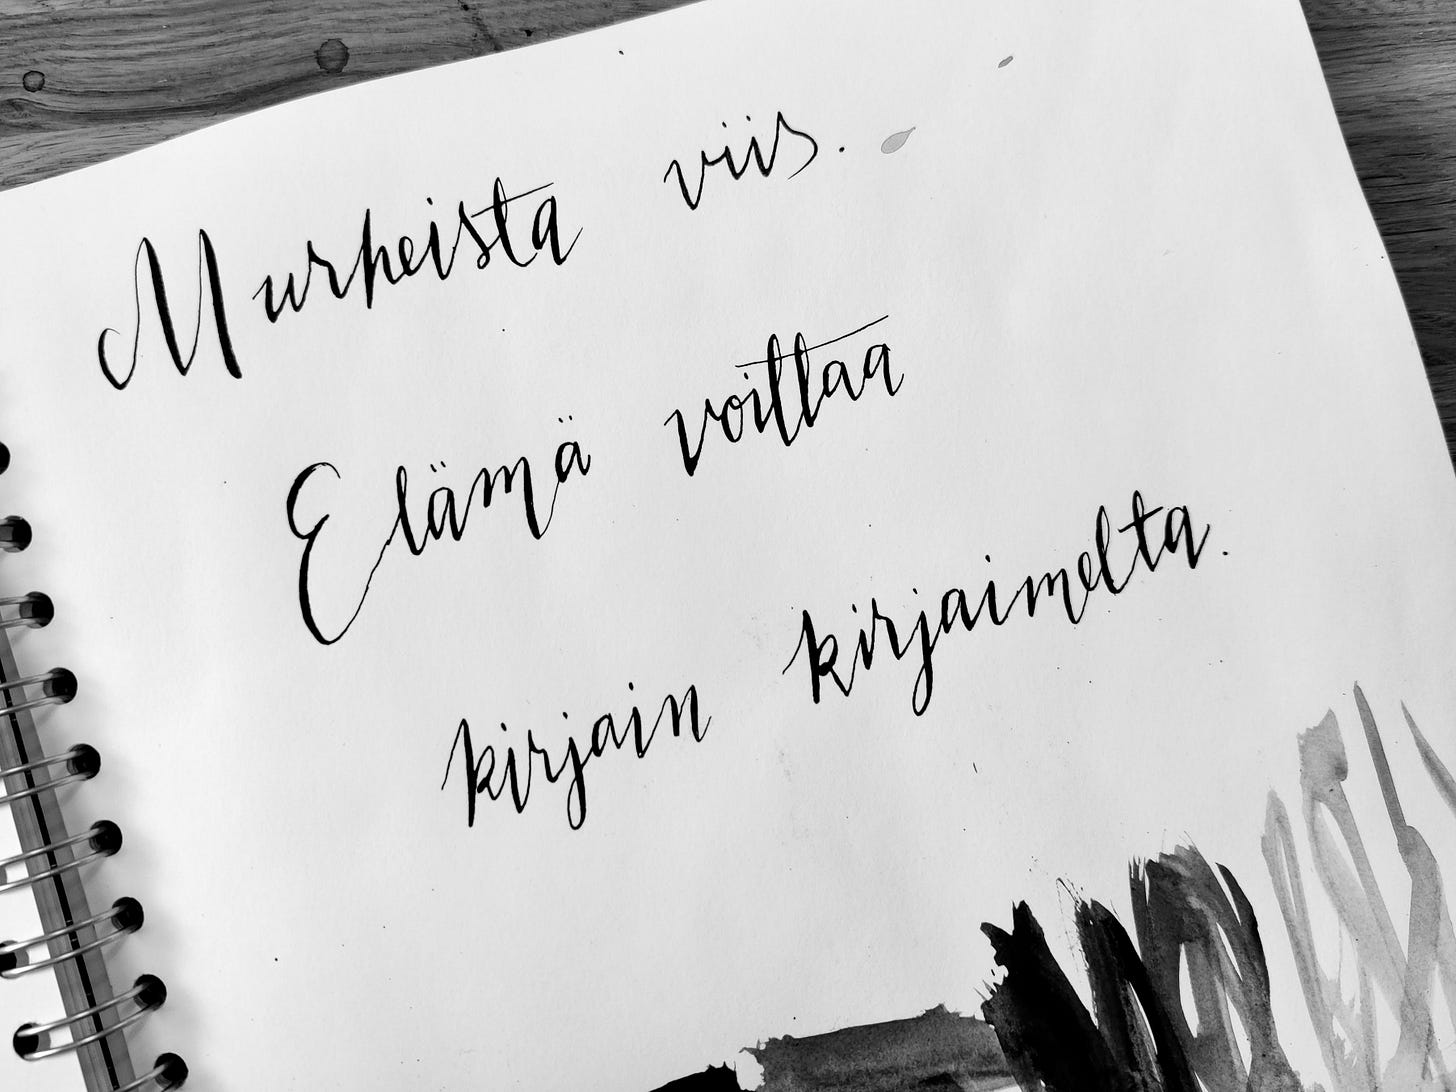 Murheista viis.
Elämä voittaa
kirjain kirjaimelta.